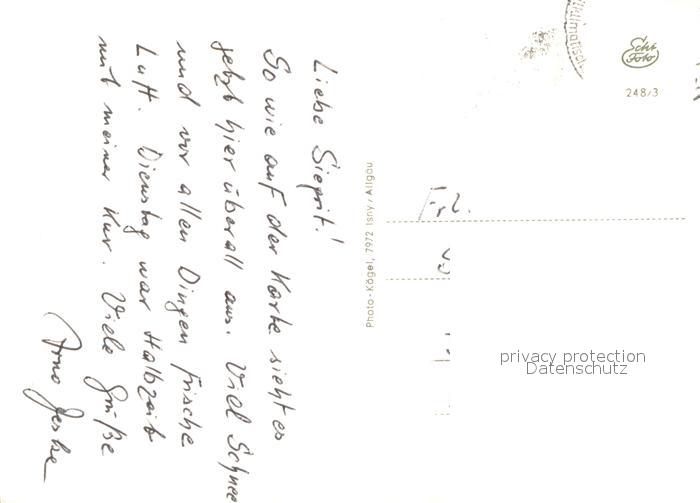 Liebe Sieprit!
So wie auf der Karte sieht es
jetzt hier überall aus. Viel Schnee
und vor allen Dingen frische
Luft. Dienstag war Halbzeit
mit meiner Kur. Viele Grüße
Arno
Photo-Kögel, 7972 Isny/Allgäu
Echt
Foto
248/3
Frl.
privacy protection
Datenschutz